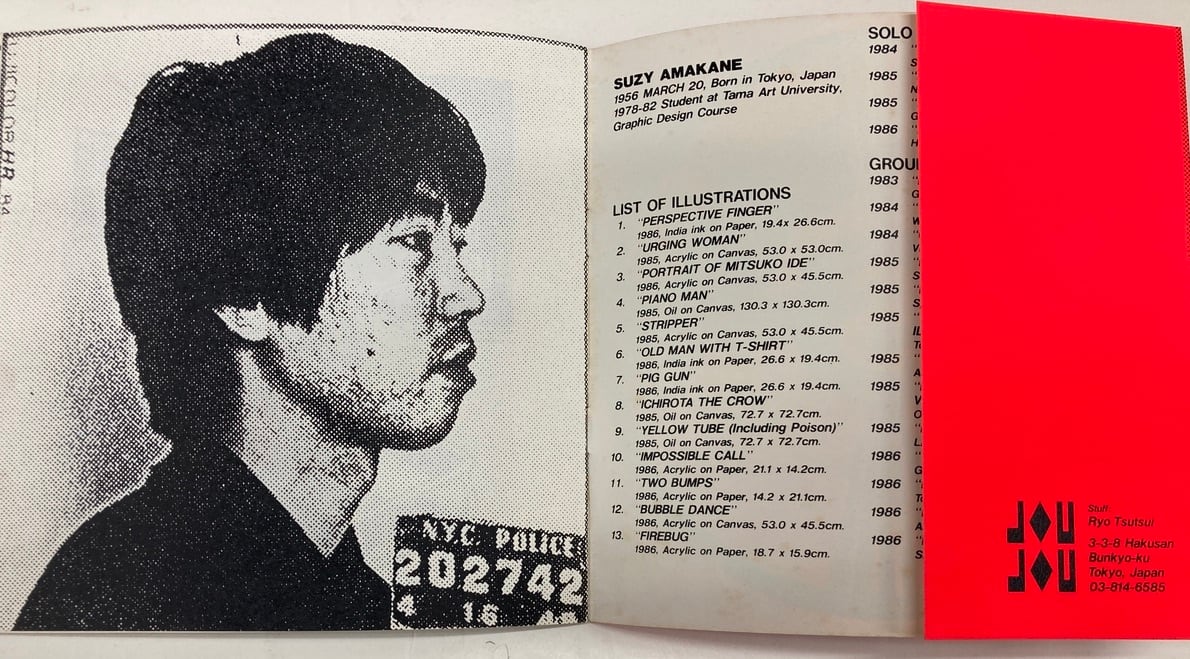 N.Y.C. POLICE
202742
4 16
SUZY AMAKANE
1956 MARCH 20, Born in Tokyo, Japan
1978-82 Student at Tama Art University,
Graphic Design Course
LIST OF ILLUSTRATIONS
1. "PERSPECTIVE FINGER"
1986, India ink on Paper, 19.4x 26.6cm.
2. "URGING WOMAN"
1985, Acrylic on Canvas, 53.0 x 53.0cm.
3. "PORTRAIT OF MITSUKO IDE"
1986, Acrylic on Canvas, 53.0 x 45.5cm.
4. "PIANO MAN"
1985, Oil on Canvas, 130.3 x 130.3cm.
5. "STRIPPER"
1985, Acrylic on Canvas, 53.0 x 45.5cm.
6. "OLD MAN WITH T-SHIRT"
1986, India ink on Paper, 26.6 x 19.4cm.
7. "PIG GUN"
1986, India ink on Paper, 26.6 x 19.4cm.
8. "ICHIROTA THE CROW"
1985, Oil on Canvas, 72.7 x 72.7cm.
9. "YELLOW TUBE (Including Poison)"
1985, Oil on Canvas, 72.7 x 72.7cm.
10. "IMPOSSIBLE CALL"
1986, Acrylic on Paper, 21.1 x 14.2cm.
11. "TWO BUMPS"
1986, Acrylic on Paper, 14.2 x 21.1cm.
12. "BUBBLE DANCE"
1986, Acrylic on Canvas, 53.0 x 45.5cm.
13. "FIREBUG"
1986, Acrylic on Paper, 18.7 x 15.9cm.
SOLO
1984
1985
1985
1986
1983
1984
1984
1985
1985
1985
1985
1985
1985
1986
1986
1986
1986
JOU
JOU
Stuff:
Ryo Tsutsui
3-3-8 Hakusan
Bunkyo-ku
Tokyo, Japan
03-814-6585